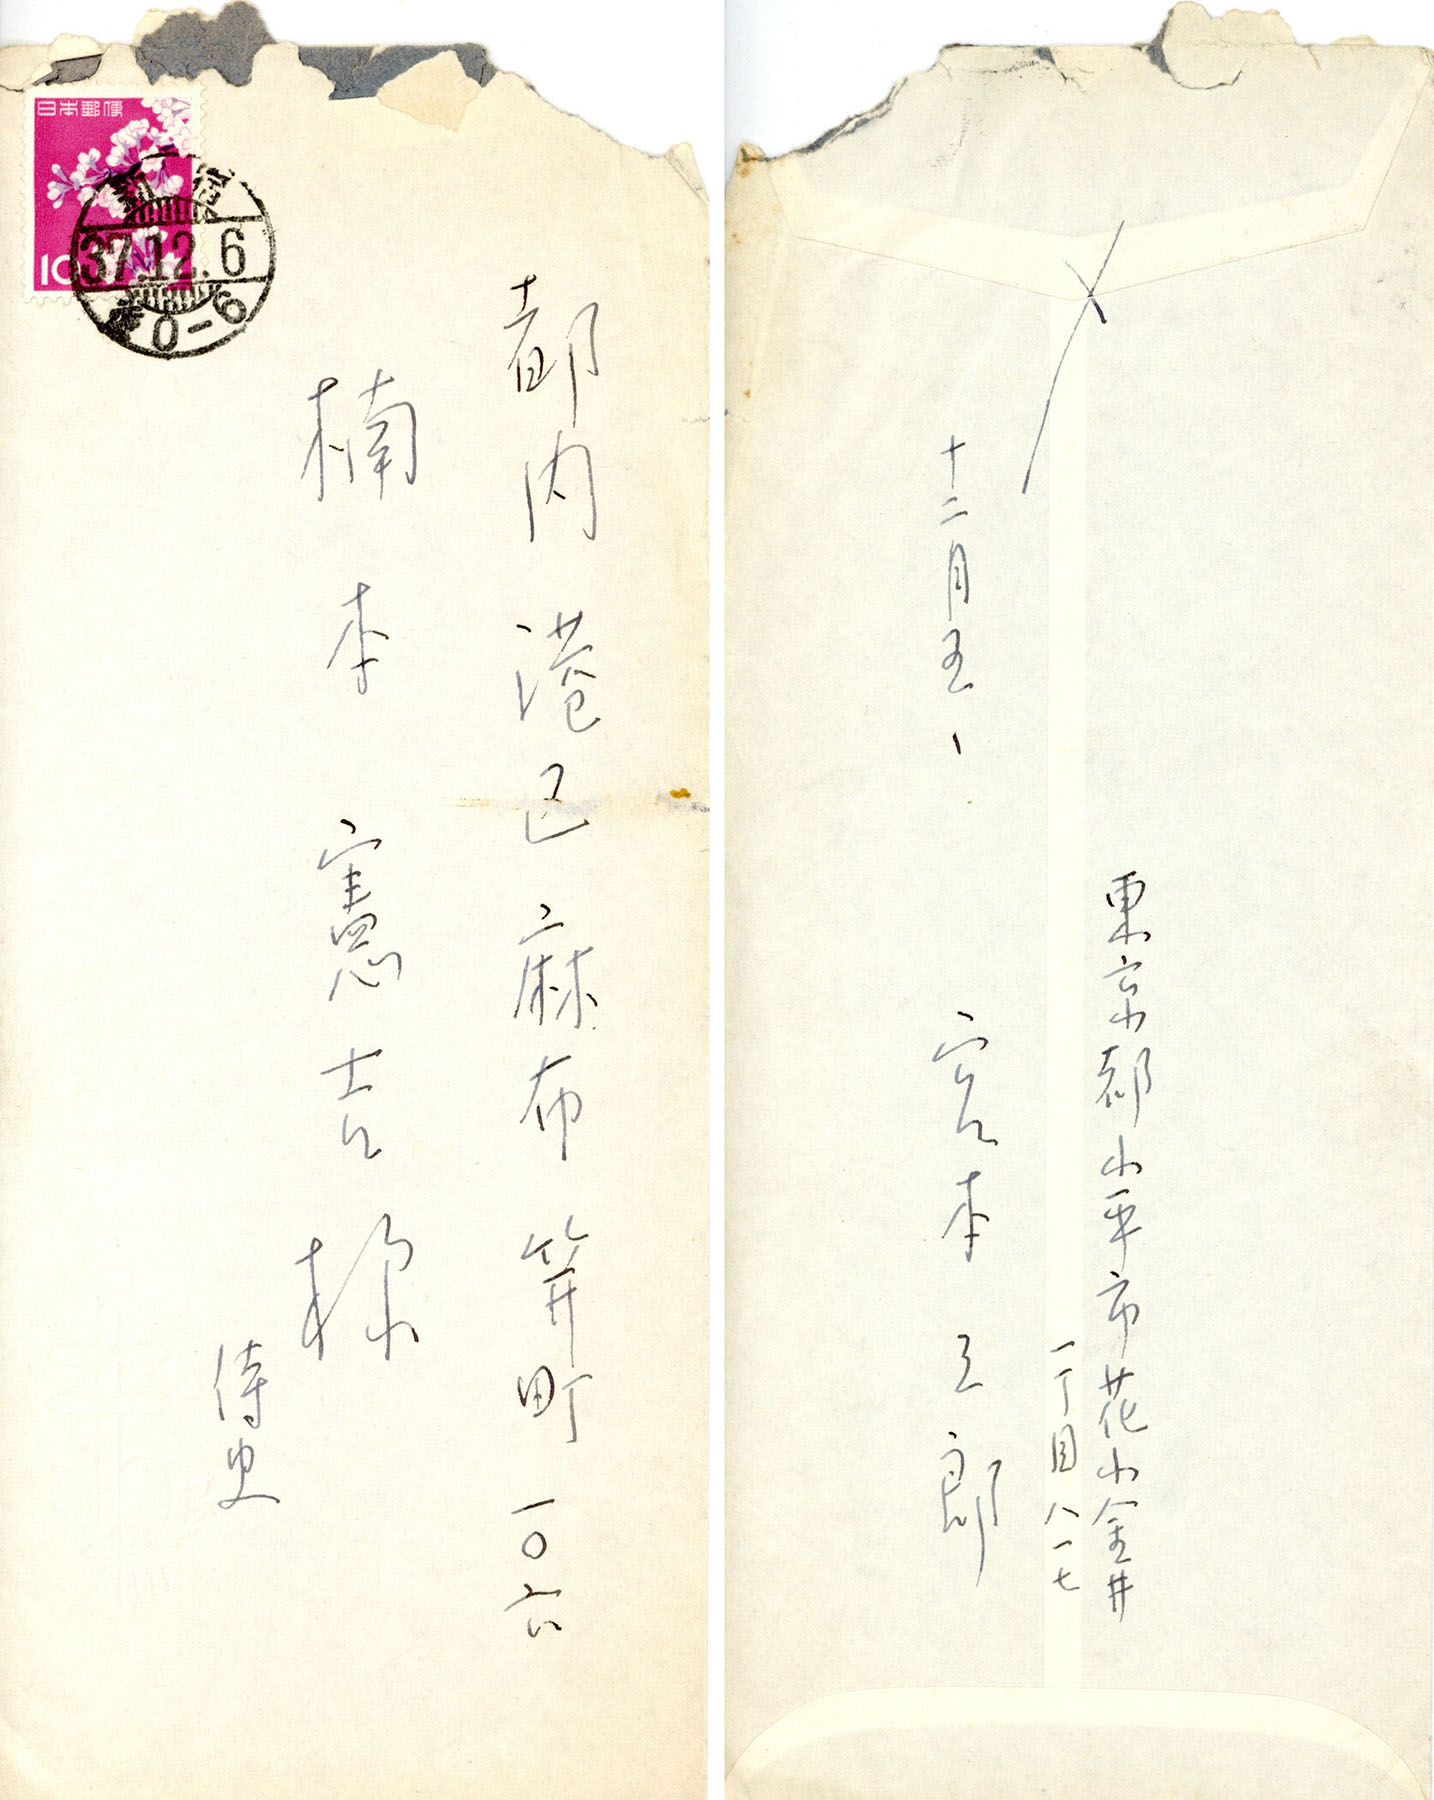 日本郵便
10
新宿
37.12.6
0-6
都内港区麻布笄町一〇六
楠本憲吉様
侍史
十二月五日
東京都小平市花小金井
一丁目八一七
宮本三郎